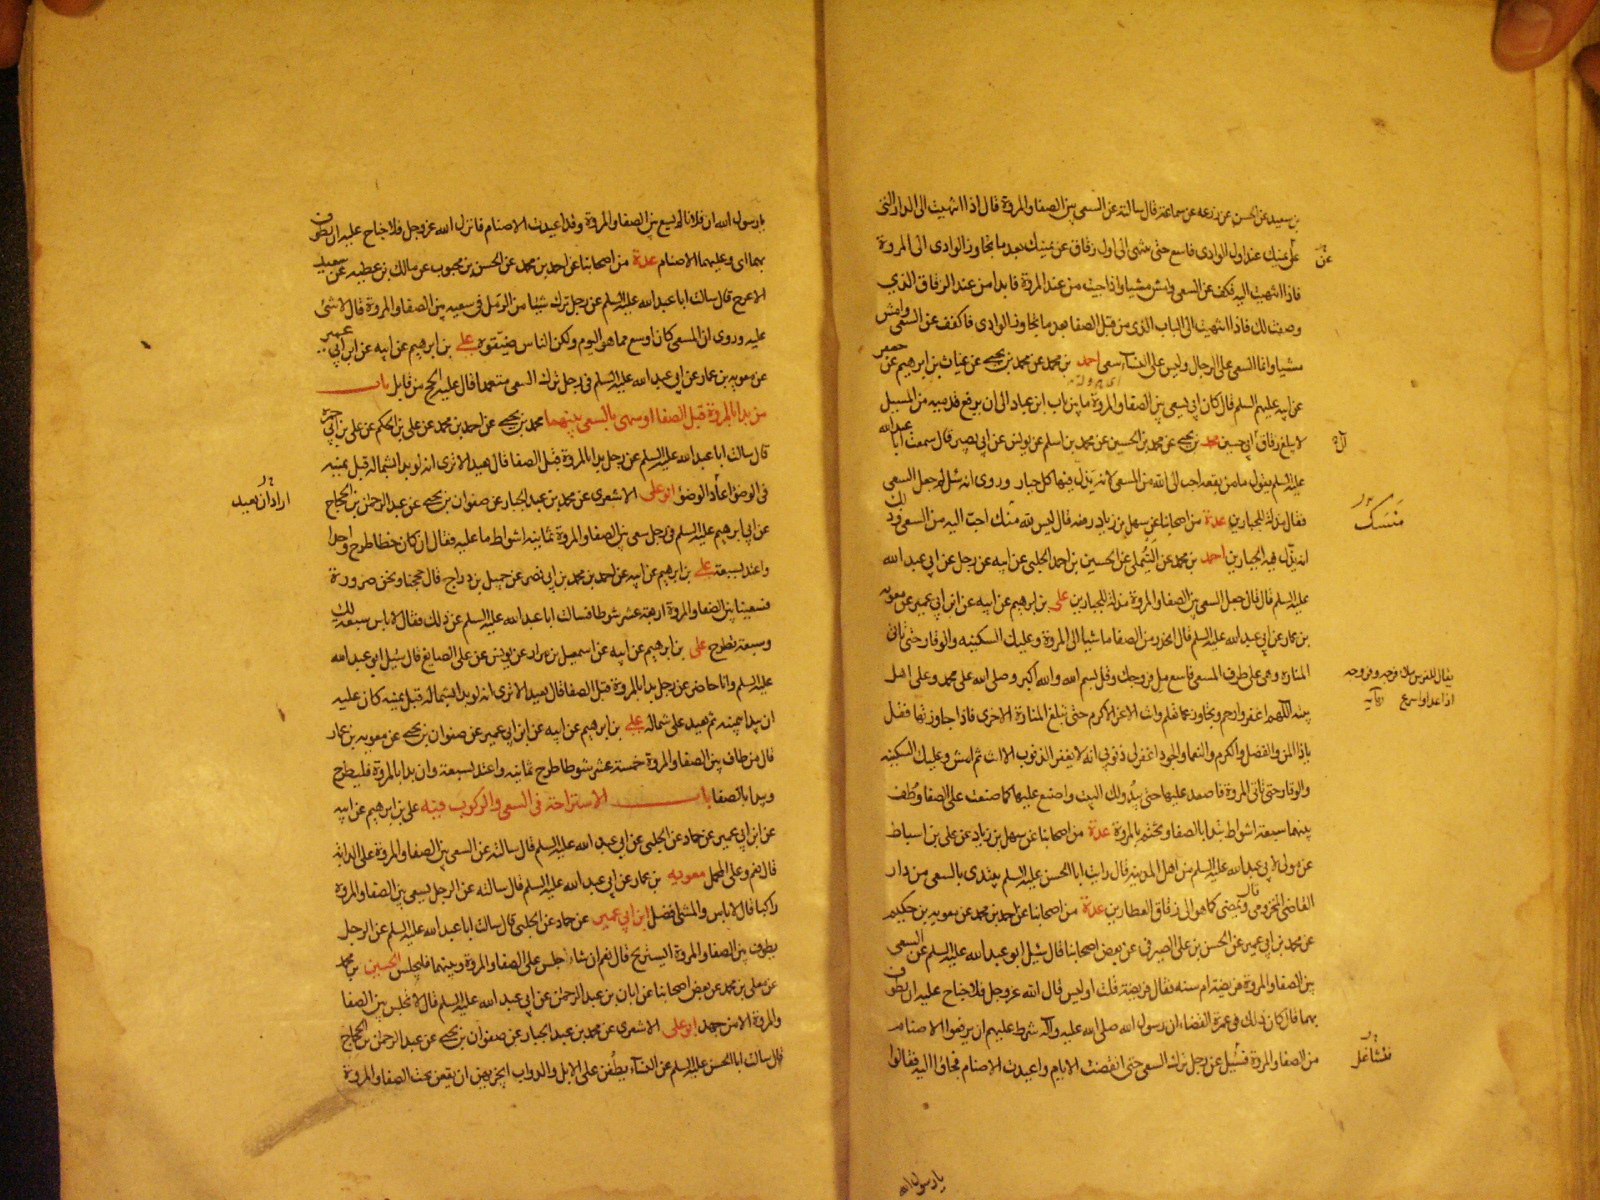 بن سعيد عن الحسن عن زرعه عن سماعة قال سالته عن السعى بين الصفا والمروة قال اذا انتهيت الى الدار التى
على يمينك عند اول الوادى فاسع حتى تنتهى الى اول زقاق عن يمينك بعد ما تجاوز الوادى الى المروة
عن
فاذا انتهيت اليه فكف عن السعى وامش مشيا واذا جيت من عند المروة فابدا من عند الزقاق الذى
وصفت لك فاذا انتهيت الى الباب الذى من قبل الصفا بعد ما تجاوز الوادى فاكفف عن السعى وامش
مشيا وانما السعى على الرجال وليس على النساء سعى احمد بن محمد عن محمد بن يحيى عن غياث بن ابرهيم عن جعفر
عن ابيه عليهم السلم قال كان ابى يسعى بين الصفا والمروة ما بين باب ابن عباد الى ان يرفع قدميه من المسيل
لا يبلغ زقاق آل ابى حسين محمد بن يحيى عن محمد بن الحسين عن محمد بن اسلم عن يونس عن ابى بصير قال سمعت ابا عبد الله
عليه السلم يقول ما من بقعة احب الى الله من المسعى لانه يذل فيها كل جبار وروى انه سئل لم جعل السعى
فقال مذلة للجبارين عدة من اصحابنا عن سهل بن زياد رفعه قال ليس لله منسك احب اليه من السعى وذلك
منسك
انه يذل فيه الجبارين احمد بن محمد عن التيملى عن الحسين بن احمد الحلبى عن ابيه عن رجل عن ابى عبد الله
عليه السلم قال قال جعل السعى بين الصفا والمروة مذلة للجبارين على بن ابرهيم عن ابيه عن ابن ابى عمير عن معويه
بن عمار عن ابى عبد الله عليه السلم قال انحدر من الصفا ماشيا الى المروة وعليك السكينه والوقار حتى تاتى
المناره وهى على طرف المسعى فاسع ملء فروجك وقل بسم الله والله اكبر وصلى الله على محمد وعلى اهل
يقال للفرس ملا فرجه وفروجه
اذا عدا واسرع
بيته اللهم اغفر وارحم وتجاوز عما تعلم وانت الاعز الاكرم حتى تبلغ المنارة الاخرى فاذا جاوزتها فقل
ياذا المن والفضل والكرم والنعما والجود اغفر لى ذنوبى انه لا يغفر الذنوب الا انت ثم امش وعليك السكينه
والوقار حتى تاتى المروة فاصعد عليها حتى يبدو لك البيت واصنع عليها كما صنعت على الصفا وطف
بينهما سبعة اشواط تبدا بالصفا وتختم بالمروة عدة من اصحابنا عن سهل بن زياد عن على بن اسباط
عن مولى لابى عبد الله عليه السلم من اهل المدينه قال رايت ابا الحسن عليه السلم يبتدى بالسعى من دار
القاضى المخزومى قال ويمضى كما هو الى زقاق العطارين عدة من اصحابنا عن احمد بن محمد عن معويه بن حكيم
عن محمد بن ابى عمير عن الحسن بن على الصيرفى عن بعض اصحابنا قال سئل ابو عبد الله عليه السلم عن السعى
بين الصفا والمروة فريضة ام سنه فقال فريضة قلت اوليس قال الله عز وجل فلا جناح عليه ان يطوف
بهما قال كان ذلك فى عمرة القضاء ان رسول الله صلى الله عليه وآله شرط عليهم ان يرفعوا الاصنام
من الصفا والمروة فسئل عن رجل ترك السعى حتى انقضت الايام واعيدت الاصنام فجاؤا اليه فقالوا
فتشاغل
يا رسول الله
يا رسول الله ان فلانا لم يسع بين الصفا والمروة وقد اعيدت الاصنام فانزل الله عز وجل فلا جناح عليه ان يطوف
بهما اى وعليهما الاصنام عدة من اصحابنا عن احمد بن محمد عن الحسن بن محبوب عن مالك بن عطيه عن سعيد
الاعرج قال سالت ابا عبد الله عليه السلم عن رجل ترك شيئا من الرمل فى سعيه بين الصفا والمروة قال لا شئ
عليه وروى ان المسعى كان اوسع مما هو اليوم ولكن الناس ضيقوه على بن ابرهيم عن ابيه عن ابن ابى عمير
عن معويه بن عمار عن ابى عبد الله عليه السلم فى رجل ترك السعى متعمدا قال عليه الحج من قابل باب
من بدا بالمروة قبل الصفا او سهى بالسعى بينهما محمد بن يحيى عن احمد بن محمد عن على بن الحكم عن على بن ابى حمزه
قال سالت ابا عبد الله عليه السلم عن رجل بدا بالمروة قبل الصفا قال يعيد الا ترى انه لو بدا بشماله قبل يمينه
فى الوضوء اعاد الوضوء ابو على الاشعرى عن محمد بن عبد الجبار عن صفوان بن يحيى عن عبد الرحمن بن الحجاج
اراد ان يعيد
عن ابى ابرهيم عليه السلم فى رجل سعى بين الصفا والمروة ثمانية اشواط ما عليه فقال ان كان خطا طرح واحدا
واعتد بسبعة على بن ابرهيم عن ابيه عن احمد بن محمد بن ابى نصر عن جميل بن دراج قال حججنا ونحن صرورة
فسعينا بين الصفا والمروة اربعة عشر شوطا فسالت ابا عبد الله عليه السلم عن ذلك فقال لا باس سبعة لك
وسبعة تطرح على بن ابرهيم عن ابيه عن اسمعيل بن مرار عن يونس عن على الصايغ قال سئل ابو عبد الله
عليه السلم وانا حاضر عن رجل بدا بالمروة قبل الصفا قال يعيد الا ترى انه لو بدا بشماله قبل يمينه كان عليه
ان يبدا بيمينه ثم يعيد على شماله على بن ابرهيم عن ابيه عن ابن ابى عمير عن صفوان بن يحيى عن معويه بن عمار
قال من طاف بين الصفا والمروة خمسة عشر شوطا طرح ثمانية واعتد بسبعة وان بدا بالمروة فليطرح
ويبدا بالصفا باب الاستراحة فى السعى والركوب فيه على بن ابرهيم عن ابيه
عن ابن ابى عمير عن حماد عن الحلبى عن ابى عبد الله عليه السلم قال سالته عن السعى بين الصفا والمروة على الدابة
قال نعم وعلى المحمل معويه بن عمار عن ابى عبد الله عليه السلم قال سالته عن الرجل يسعى بين الصفا والمروة
راكبا قال لا باس والمشى افضل ابن ابى عمير عن حماد عن الحلبى قال سالت ابا عبد الله عليه السلم عن الرجل
يطوف بين الصفا والمروة ايستريح قال نعم ان شاء جلس على الصفا والمروة وبينهما فليجلس الحسين بن محمد
عن معلى بن محمد عن بعض اصحابنا عن ابان بن عبد الرحمن عن ابى عبد الله عليه السلم قال لا تجلس بين الصفا
والمروة الا من جهد ابو على الاشعرى عن محمد بن عبد الجبار عن صفوان بن يحيى عن عبد الرحمن بن الحجاج
قال سالت ابا الحسن عليه السلم عن النساء يطفن على الابل والدواب ايجزيهن ان يقفن تحت الصفا والمروة